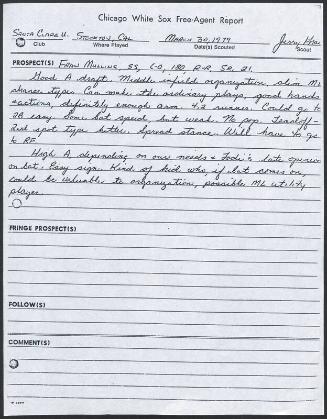 Chicago White Sox Free-Agent Report
Santa Clara U. Stockton, Cal March 30, 1979 Jerry
Club Where Played Date(s) Scouted Scout
PROSPECT(S) Fran Mullins SS, 6-0, 180, R-R, SR, 21.
Good A draft. Middle infield organization, slim ML
chance type. Can make the ordinary plays, good hands
+ actions, definitely enough arm. 4.2 runner. Could go to
2B easy. Some bat speed but weak. No pop. Leadoff-
2nd spot type hitter. Spread stance. Will have to go
to RF.
High A depending on our needs + late opinion
on bat. Easy sign. Kind of kid who if bat comes on,
could be valuable to organization, possible ML utility
player.
FRINGE PROSPECT(S)
FOLLOW(S)
COMMENT(S)